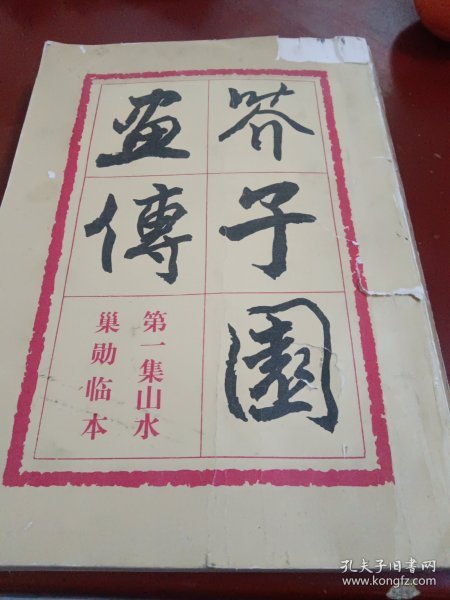 芥子園
畫傳
第一集山水
巢勋临本
孔夫子旧书网
www.kongfz.com